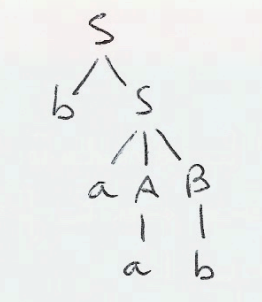 S
b S
a A B
a b